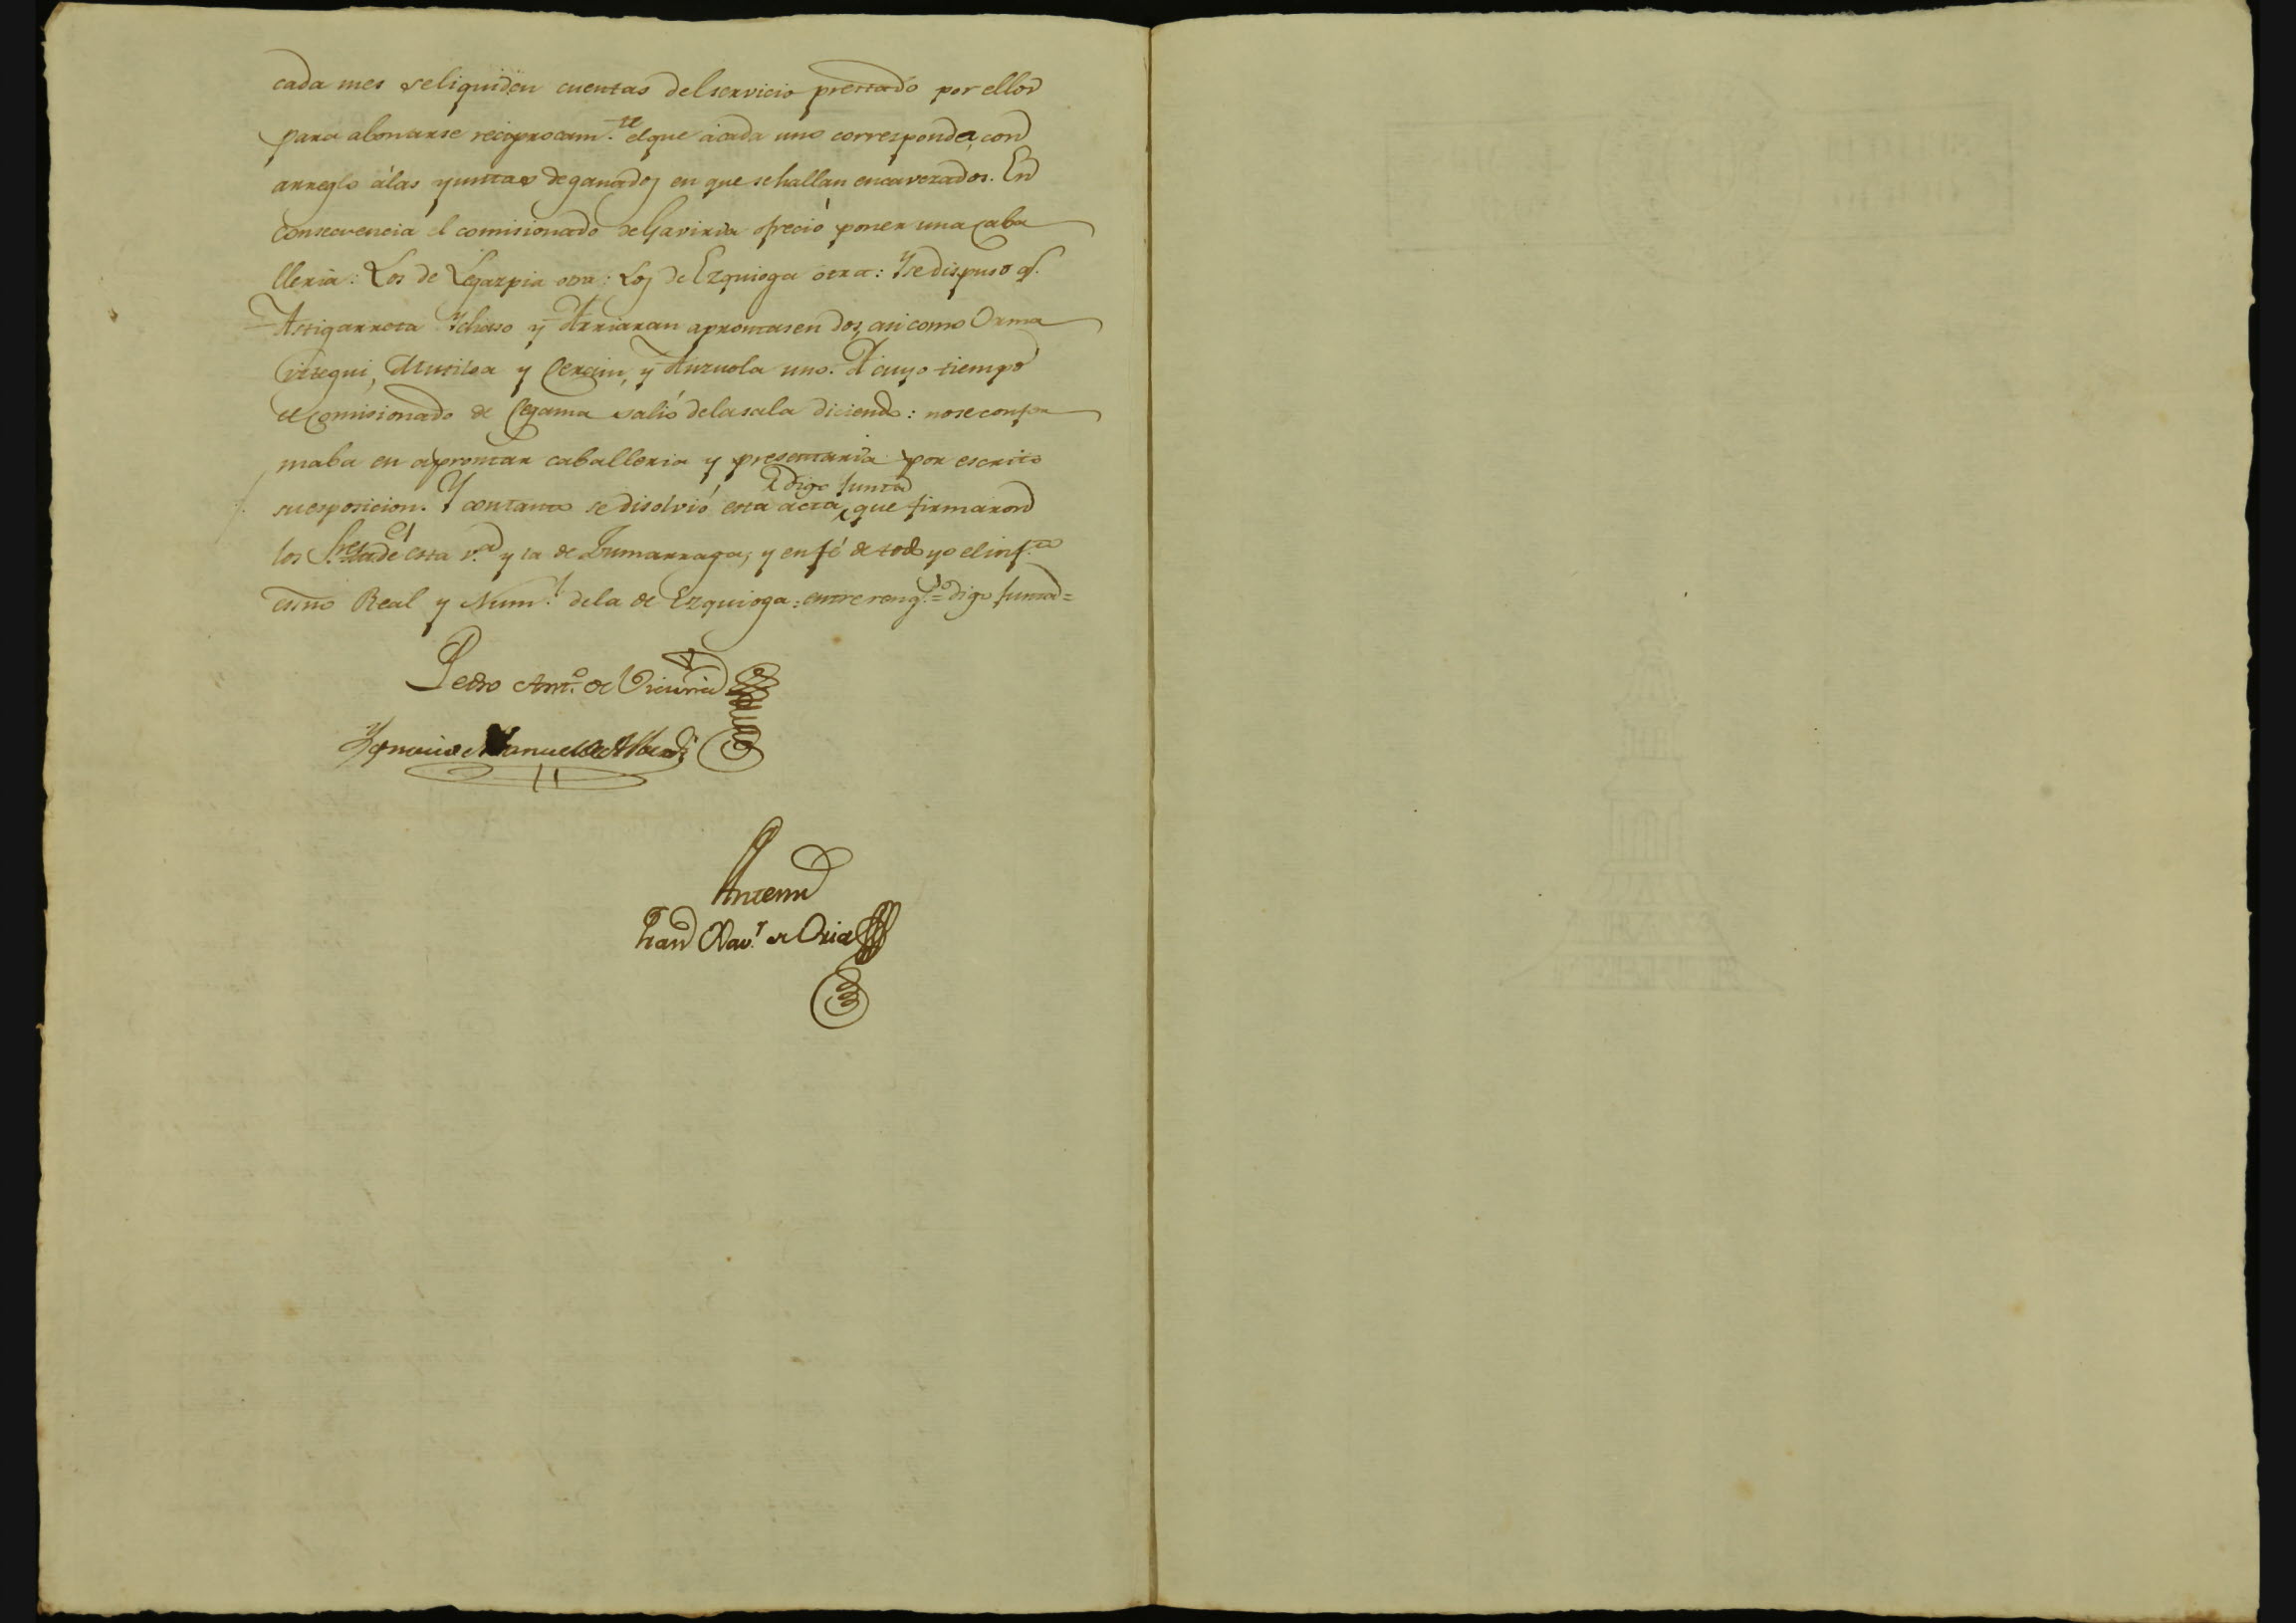 cada mes se liquiden cuentas del servicio prestado por ellos
para abonarse reciprocam.te el que á cada uno corresponda, con
arreglo á las yuntas de ganados en que se hallan encavezados. En
consecuencia el comisionado de Gaviria ofreció poner una caba
lleria: Los de Legazpia otra: Los de Ezquioga otra: Y se dispuso q.e
Astigarreta Ychaso y Arriaran aprontasen dos, asi como Orma
iztegui, Mutiloa y Cerain, y Anzuola uno. A cuyo tiempo
el comisionado de Cegama salió de la sala diciendo: no se confor
maba en aprontar caballeria y presentaria por escrito
digo Junta
su esposicion. Y con tanto se disolvió esta acta que firmaron
los S.res de esta v.a y la de Zumarraga, y en fé de todo yo el inf.to
esno Real y Num.l de la de Ezquioga: entre reng.s = digo Junta =
Pedro Ant.o de
Ygnacio Manuel de
Antemi
Fran Xav.r de Oria